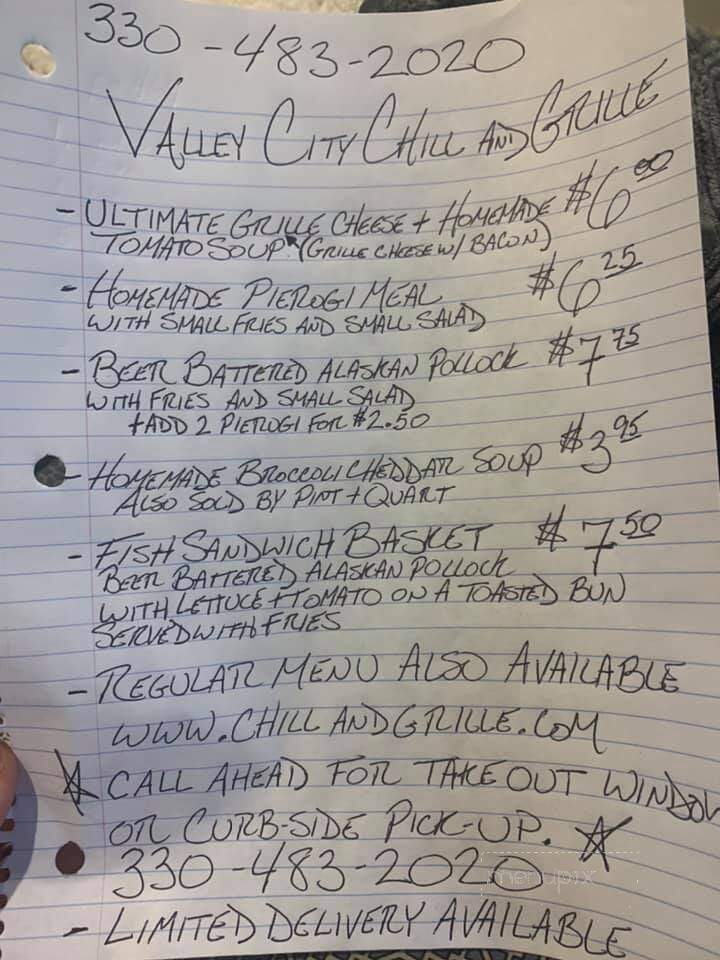 330-483-2020
VALLEY CITY CHILL AND GRILLE
- ULTIMATE GRILLE CHEESE + HOMEMADE $6.00
TOMATO SOUP. (GRILLE CHEESE W/ BACON)
- HOMEMADE PIEROGI MEAL $6.25
WITH SMALL FRIES AND SMALL SALAD
- BEER BATTERED ALASKAN POLLOCK $7.75
WITH FRIES AND SMALL SALAD
+ADD 2 PIEROGI FOR $2.50
- HOMEMADE BROCCOLI CHEDDAR SOUP $3.95
ALSO SOLD BY PINT + QUART
- FISH SANDWICH BASKET $7.50
BEER BATTERED ALASKAN POLLOCK
WITH LETTUCE + TOMATO ON A TOASTED BUN
SERVED WITH FRIES
- REGULAR MENU ALSO AVAILABLE
WWW.CHILLANDGRILLE.COM
☆ CALL AHEAD FOR TAKE OUT WINDOW
OR CURB-SIDE PICK-UP. ☆
330-483-2020
menupix
- LIMITED DELIVERY AVAILABLE